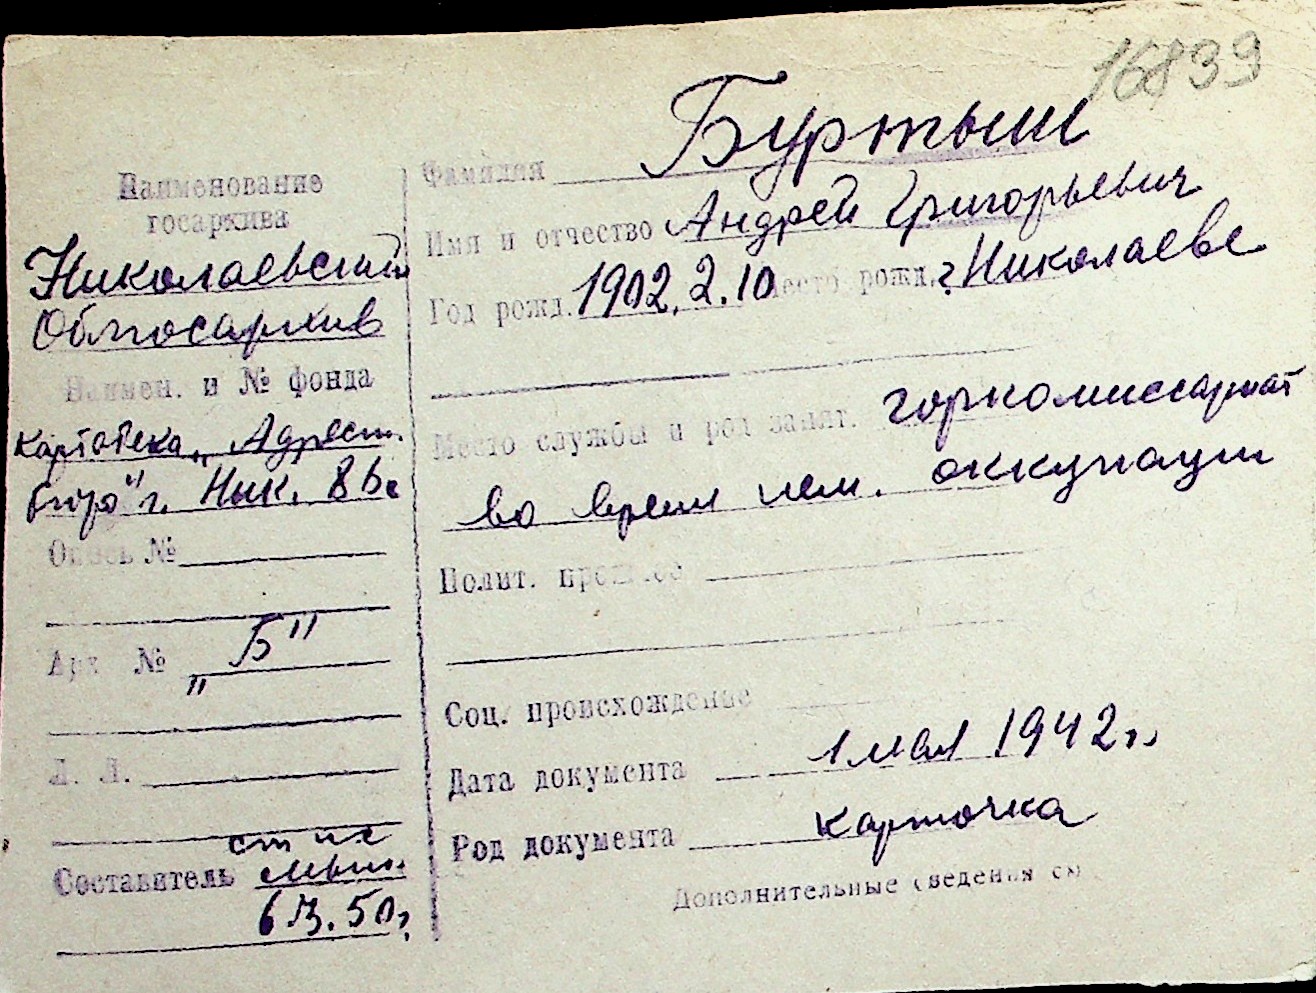 16839
Наименование
госархива
Николаевский
Облгосархив
Наимен. и № фонда
картотека „Адресн.
бюро" г. Ник.
Опись №
Арх №
„Б"
Л. Л.
Составитель
50г.
Фамилия Буртыш
Имя и отчество Андрей Григорьевич
Год рожд. 1902.2.10 Место рожд. г. Николаеве
Место службы и род занят. горкомиссариат
во время нем. оккупации
Полит. прошлое
Соц. происхождение
Дата документа 1 мая 1942г.
Род документа карточка
Дополнительные сведения см